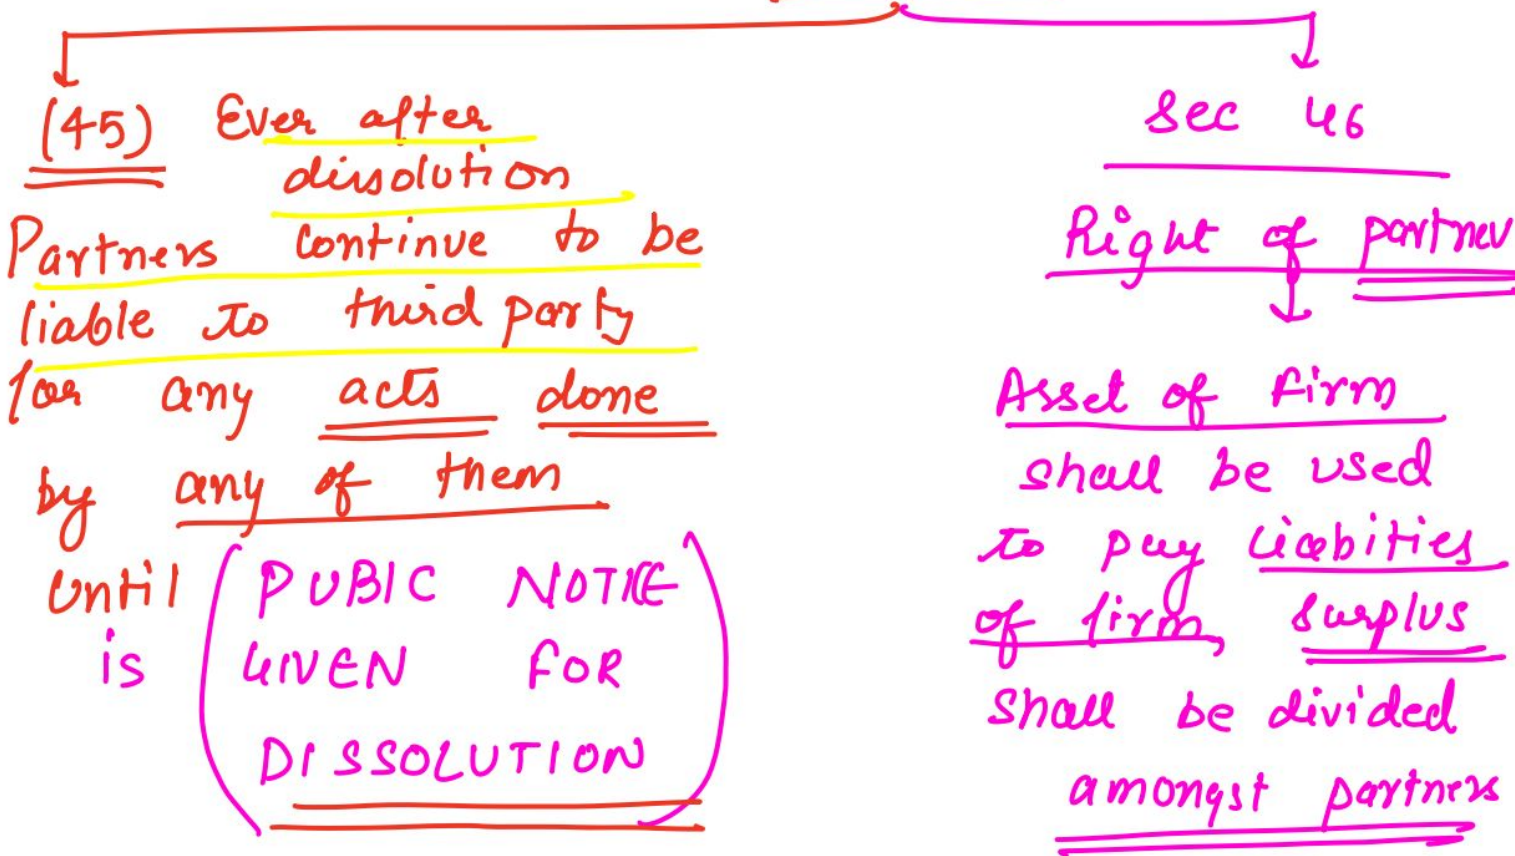 (45) Ever after
dissolution
Partners continue to be
liable to third party
for any acts done
by any of them
until
is
(PUBIC NOTICE
GIVEN FOR
DISSOLUTION)
Sec 46
Right of partner
Asset of firm
shall be used
to pay liabities
of firm, surplus
shall be divided
amongst partners